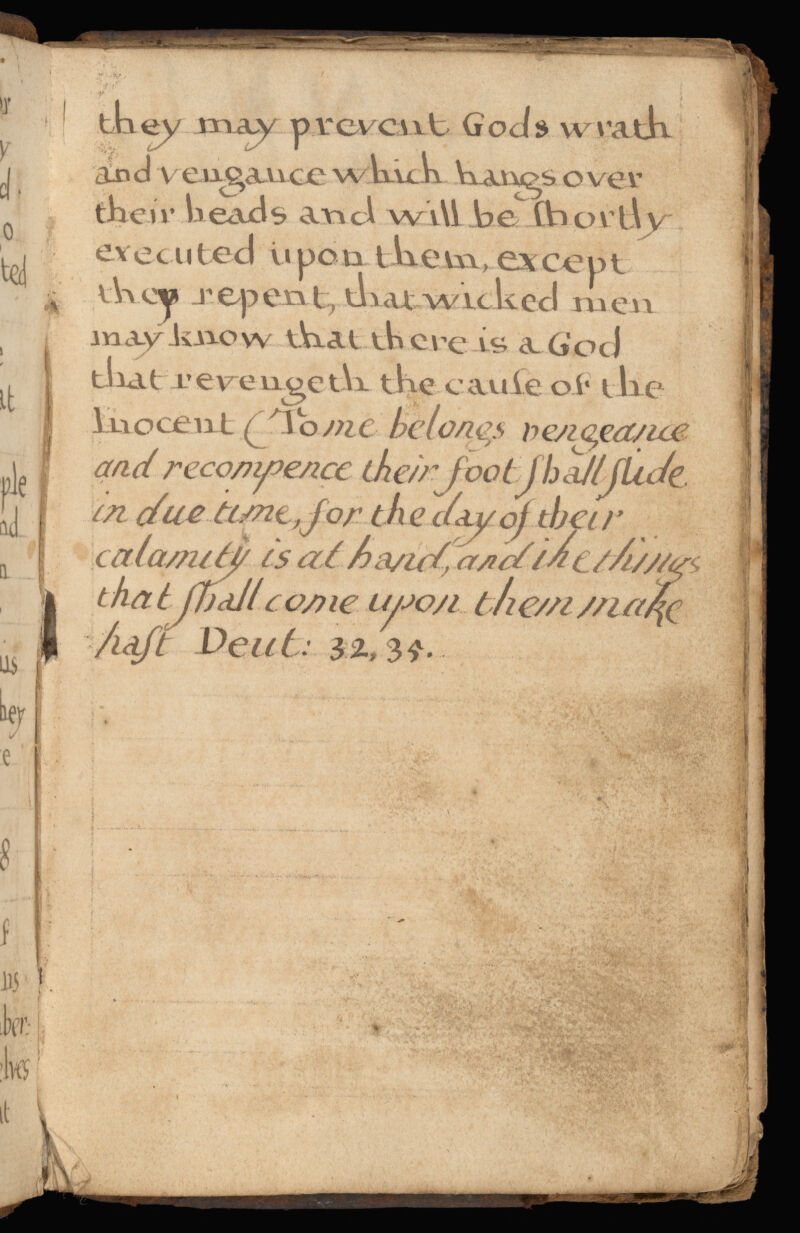 they may prevent Gods wrath
and vengance which hangs over
their heads and will be ſhortly
executed upon them, except
they repent, that wicked men
may know that there is a God
that revengeth the cauſe of the
Inocent (To me belongs vengeance
and recompence their foot ſhall ſlide
in due time, for the day of their
calamity is at hand, and the things
that ſhall come upon them make
haſt Deut: 32, 35.